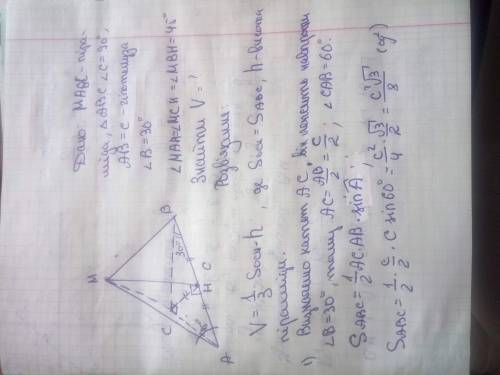 Дано: MABC - піра-
міда, △ABC ∠C = 90°,
AB = c - гіпотенуза
∠B = 30°
∠MAH = ∠MCH = ∠MBH = 45°
Знайти V = ?
Розв'язання:
M
C
B
30°
A
H
C
V = 1/3 Sосн · h, де Sосн = SABC, h - висота
піраміди.
1) Визначаємо катет AC, він лежить навпроти
∠B = 30°, тому AC = AB/2 = c/2; ∠CAB = 60°.
SABC = 1/2 AC · AB · sin A;
SABC = 1/2 · c/2 · c sin 60° = c²/4 · √3/2 = c²√3/8